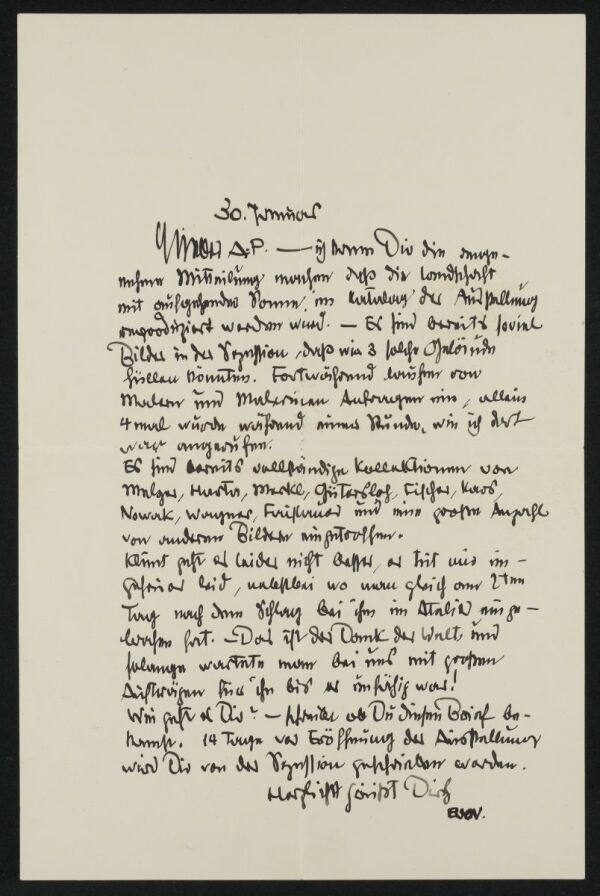 30. Januar
Lieber A.P. — ich kann Dir die ange-
nehme Mitteilung machen daß die Landschaft
mit aufgehender Sonne im Katalog der Ausstellung
reproduziert werden wird. — Es sind bereits soviel
Bilder in der Sezession, daß wir 3 solche Gebäude
füllen könnten. Fortwährend laufen von
Malern und Malerinen Anfragen ein, allein
4 mal wurde während einer Stunde, wie ich dort
war angerufen.
Es sind bereits vollständige Kollektionen von
Melzer, Harta, Merkl, Gütersloh, Fischer, Kars,
Nowak, Wagner, Faistauer und eine große Anzahl
von anderen Bildern eingetroffen.
Klimt geht es leider nicht besser, er tut mir un-
geheuer leid, nebstbei wo man gleich am 2ten
Tag nach dem Schlag bei ihm im Atelier einge-
brochen hat. — Das ist der Dank der Welt, und
solange wartete man bei uns mit großen
Aufträgen für ihn bis er unfähig war!
Wie geht es Dir? — schreibe ob Du diesen Brief be-
kamst. 14 Tage vor Eröffnung der Ausstellung
wird Dir von der Sezession geschrieben werden.
Herzlichst grüßt Dich